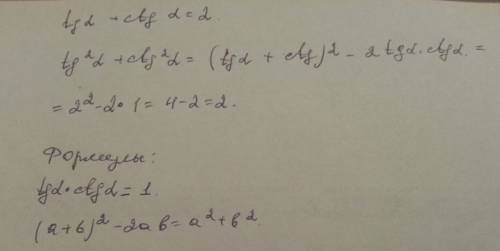 tg α + ctg α = 2.
tg²α + ctg²α = (tg α + ctg)² - 2 tg α · ctg α =
= 2² - 2 · 1 = 4 - 2 = 2.
Формулы:
tg α · ctg α = 1.
(a + b)² - 2ab = a² + b².